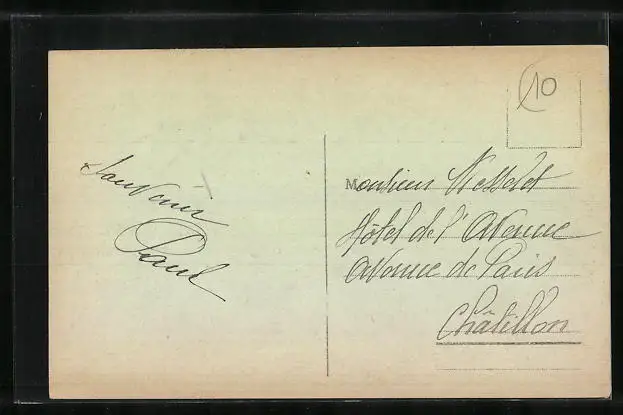 Souvenir
Paul
10
Monsieur
Hôtel de l'Avenue
Avenue de Paris
Châtillon